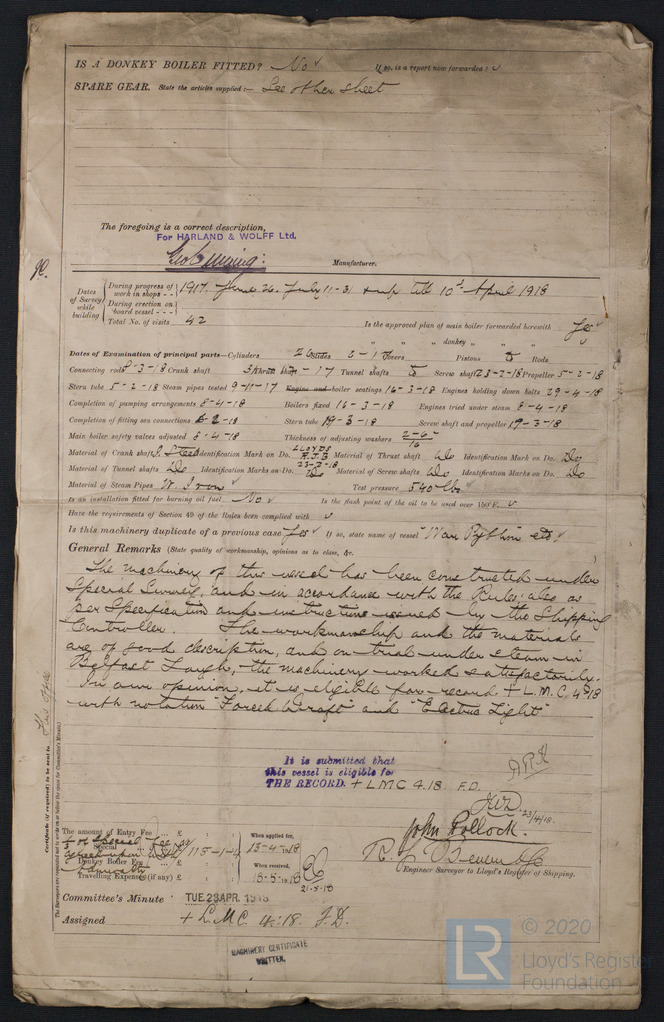 IS A DONKEY BOILER FITTED? No If so, is a report now forwarded?
SPARE GEAR. State the articles supplied:— See other sheet
The foregoing is a correct description,
For HARLAND & WOLFF Ltd.
Manufacturer.
Dates of Survey while building
During progress of work in shops - - 1917. June 26. July 11-31 & up till 10th April 1918
During erection on board vessel - - -
Total No. of visits 42
Is the approved plan of main boiler forwarded herewith Yes
" " " donkey " " "
Dates of Examination of principal parts—Cylinders Slides Covers Pistons Rods
Connecting rods 8-3-18 Crank shaft Thrust shaft Tunnel shafts Screw shaft 23-2-18 Propeller 5-2-18
Stern tube 5-2-18 Steam pipes tested 9-11-17 Engine and boiler seatings 16-3-18 Engines holding down bolts 29-4-18
Completion of pumping arrangements 8-4-18 Boilers fixed 16-3-18 Engines tried under steam 8-4-18
Completion of fitting sea connections 6-2-18 Stern tube 19-3-18 Screw shaft and propeller 19-3-18
Main boiler safety valves adjusted 8-4-18 Thickness of adjusting washers
Material of Crank shaft Steel Identification Mark on Do. LLOYDS 23-2-18 Material of Thrust shaft do Identification Mark on Do. Do
Material of Tunnel shafts Do Identification Marks on Do. Do Material of Screw shafts Do Identification Marks on Do. Do
Material of Steam Pipes W. Iron Test pressure 540 lbs
Is an installation fitted for burning oil fuel No Is the flash point of the oil to be used over 150°F.
Have the requirements of Section 49 of the Rules been complied with
Is this machinery duplicate of a previous case Yes If so, state name of vessel "War Python" etc
General Remarks (State quality of workmanship, opinions as to class, &c.
The machinery of this vessel has been constructed under
Special Survey, and in accordance with the Rules also as
per Specification and instructions issued by the Shipping
Controller. The workmanship and the materials
are of good description, and on trial under steam in
Belfast Lough, the machinery worked satisfactorily.
In our opinion, it is eligible for record + L.M.C. 4.18
with notation "Forced Draft" and "Electric Light"
Certificate (if required) to be sent to
The Surveyors are requested not to write on or below the space for Committee's Minute.
It is submitted that
this vessel is eligible for
THE RECORD. + LMC 4.18. F.D.
23/4/18.
The amount of Entry Fee ... £
Special ... £ 115-1-
Donkey Boiler Fee ... £
Travelling Expenses (if any) £
When applied for, 13-4-1918
When received, 15-5-1918
21-5-18
John Pollock.
Engineer Surveyor to Lloyd's Register of Shipping.
Committee's Minute TUE. 23 APR. 1918
Assigned + L.M.C. 4.18. F.D.
MACHINERY CERTIFICATE
WRITTEN.
LR © 2020
Lloyd's Register
Foundation